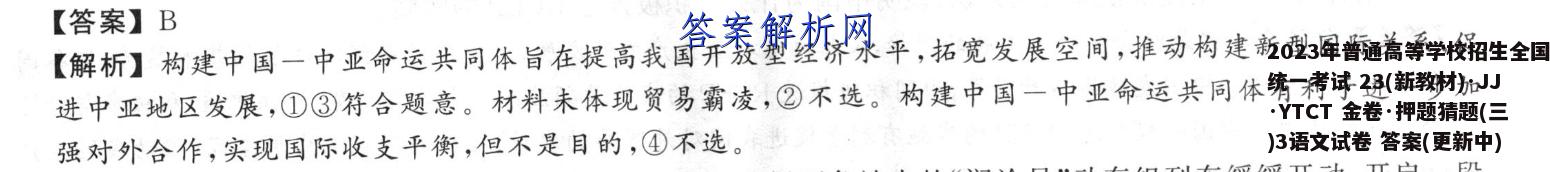 【答案】B
答案解析网
【解析】构建中国—中亚命运共同体旨在提高我国开放型经济水平,拓宽发展空间,推动构建新型国际关系,促
进中亚地区发展,①③符合题意。材料未体现贸易霸凌,②不选。构建中国—中亚命运共同体有利于进一步加
强对外合作,实现国际收支平衡,但不是目的,④不选。
2023年普通高等学校招生全国
统一考试 23(新教材)·JJ
·YTCT 金卷·押题猜题(三
)3语文试卷 答案(更新中)